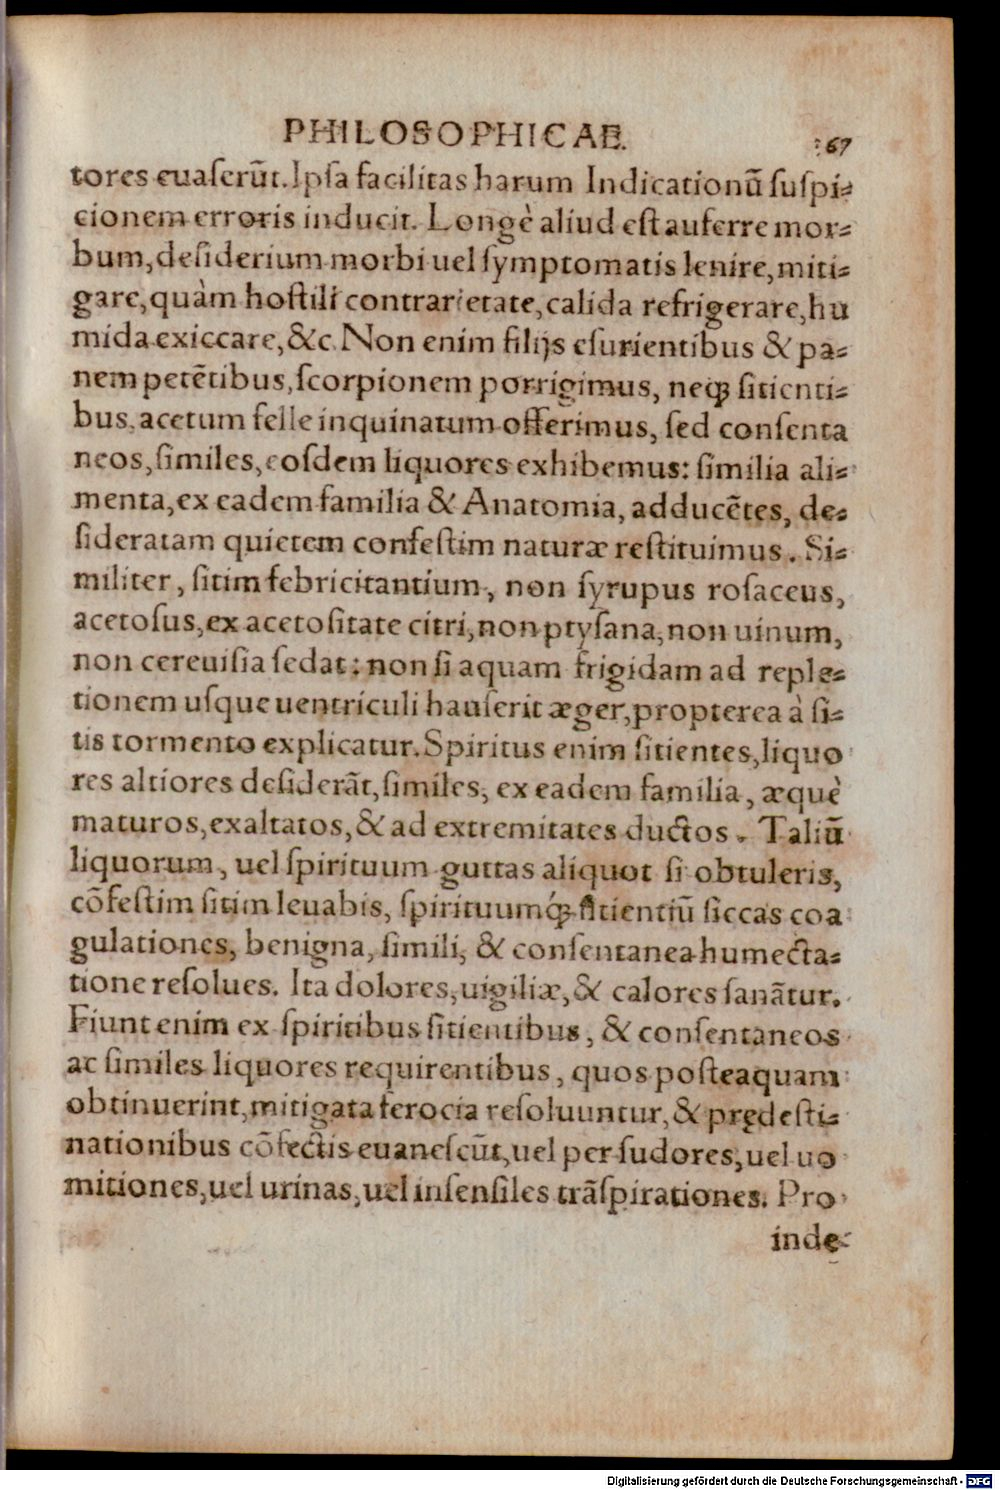 PHILOSOPHICAE. 267
tores euaserūt. Ipsa facilitas harum Indicationū suspi-
cionem erroris inducit. Longè aliud est auferre mor-
bum, desiderium morbi uel symptomatis lenire, miti-
gare, quàm hostili contrarietate, calida refrigerare, hu
mida exiccare, &c. Non enim filijs esurientibus & pa-
nem petētibus, scorpionem porrigimus, neqꝫ sitienti-
bus acetum felle inquinatum offerimus, sed consenta
neos, similes, eosdem liquores exhibemus: similia ali-
menta, ex eadem familia & Anatomia, adducētes, de-
sideratam quietem confestim naturæ restituimus. Si-
militer, sitim febricitantium, non syrupus rosaceus,
acetosus, ex acetositate citri, non ptysana, non uinum,
non cereuisia sedat: non si aquam frigidam ad reple-
tionem usque uentriculi hauserit æger, propterea à si-
tis tormento explicatur. Spiritus enim sitientes, liquo
res altiores desiderāt, similes, ex eadem familia, æquè
maturos, exaltatos, & ad extremitates ductos. Taliū
liquorum, uel spirituum guttas aliquot si obtuleris,
cōfestim sitim leuabis, spirituumqꝫ́ sitientiū siccas coa
gulationes, benigna, simili, & consentanea humecta-
tione resolues. Ita dolores, uigiliæ, & calores sanātur.
Fiunt enim ex spiritibus sitientibus, & consentaneos
ac similes liquores requirentibus, quos posteaquam
obtinuerint, mitigata ferocia resoluuntur, & prędesti-
nationibus cōfectis euanescūt, uel per sudores, uel uo
mitiones, uel urinas, uel insensiles trāspirationes. Pro
inde
Digitalisierung gefördert durch die Deutsche Forschungsgemeinschaft - DFG